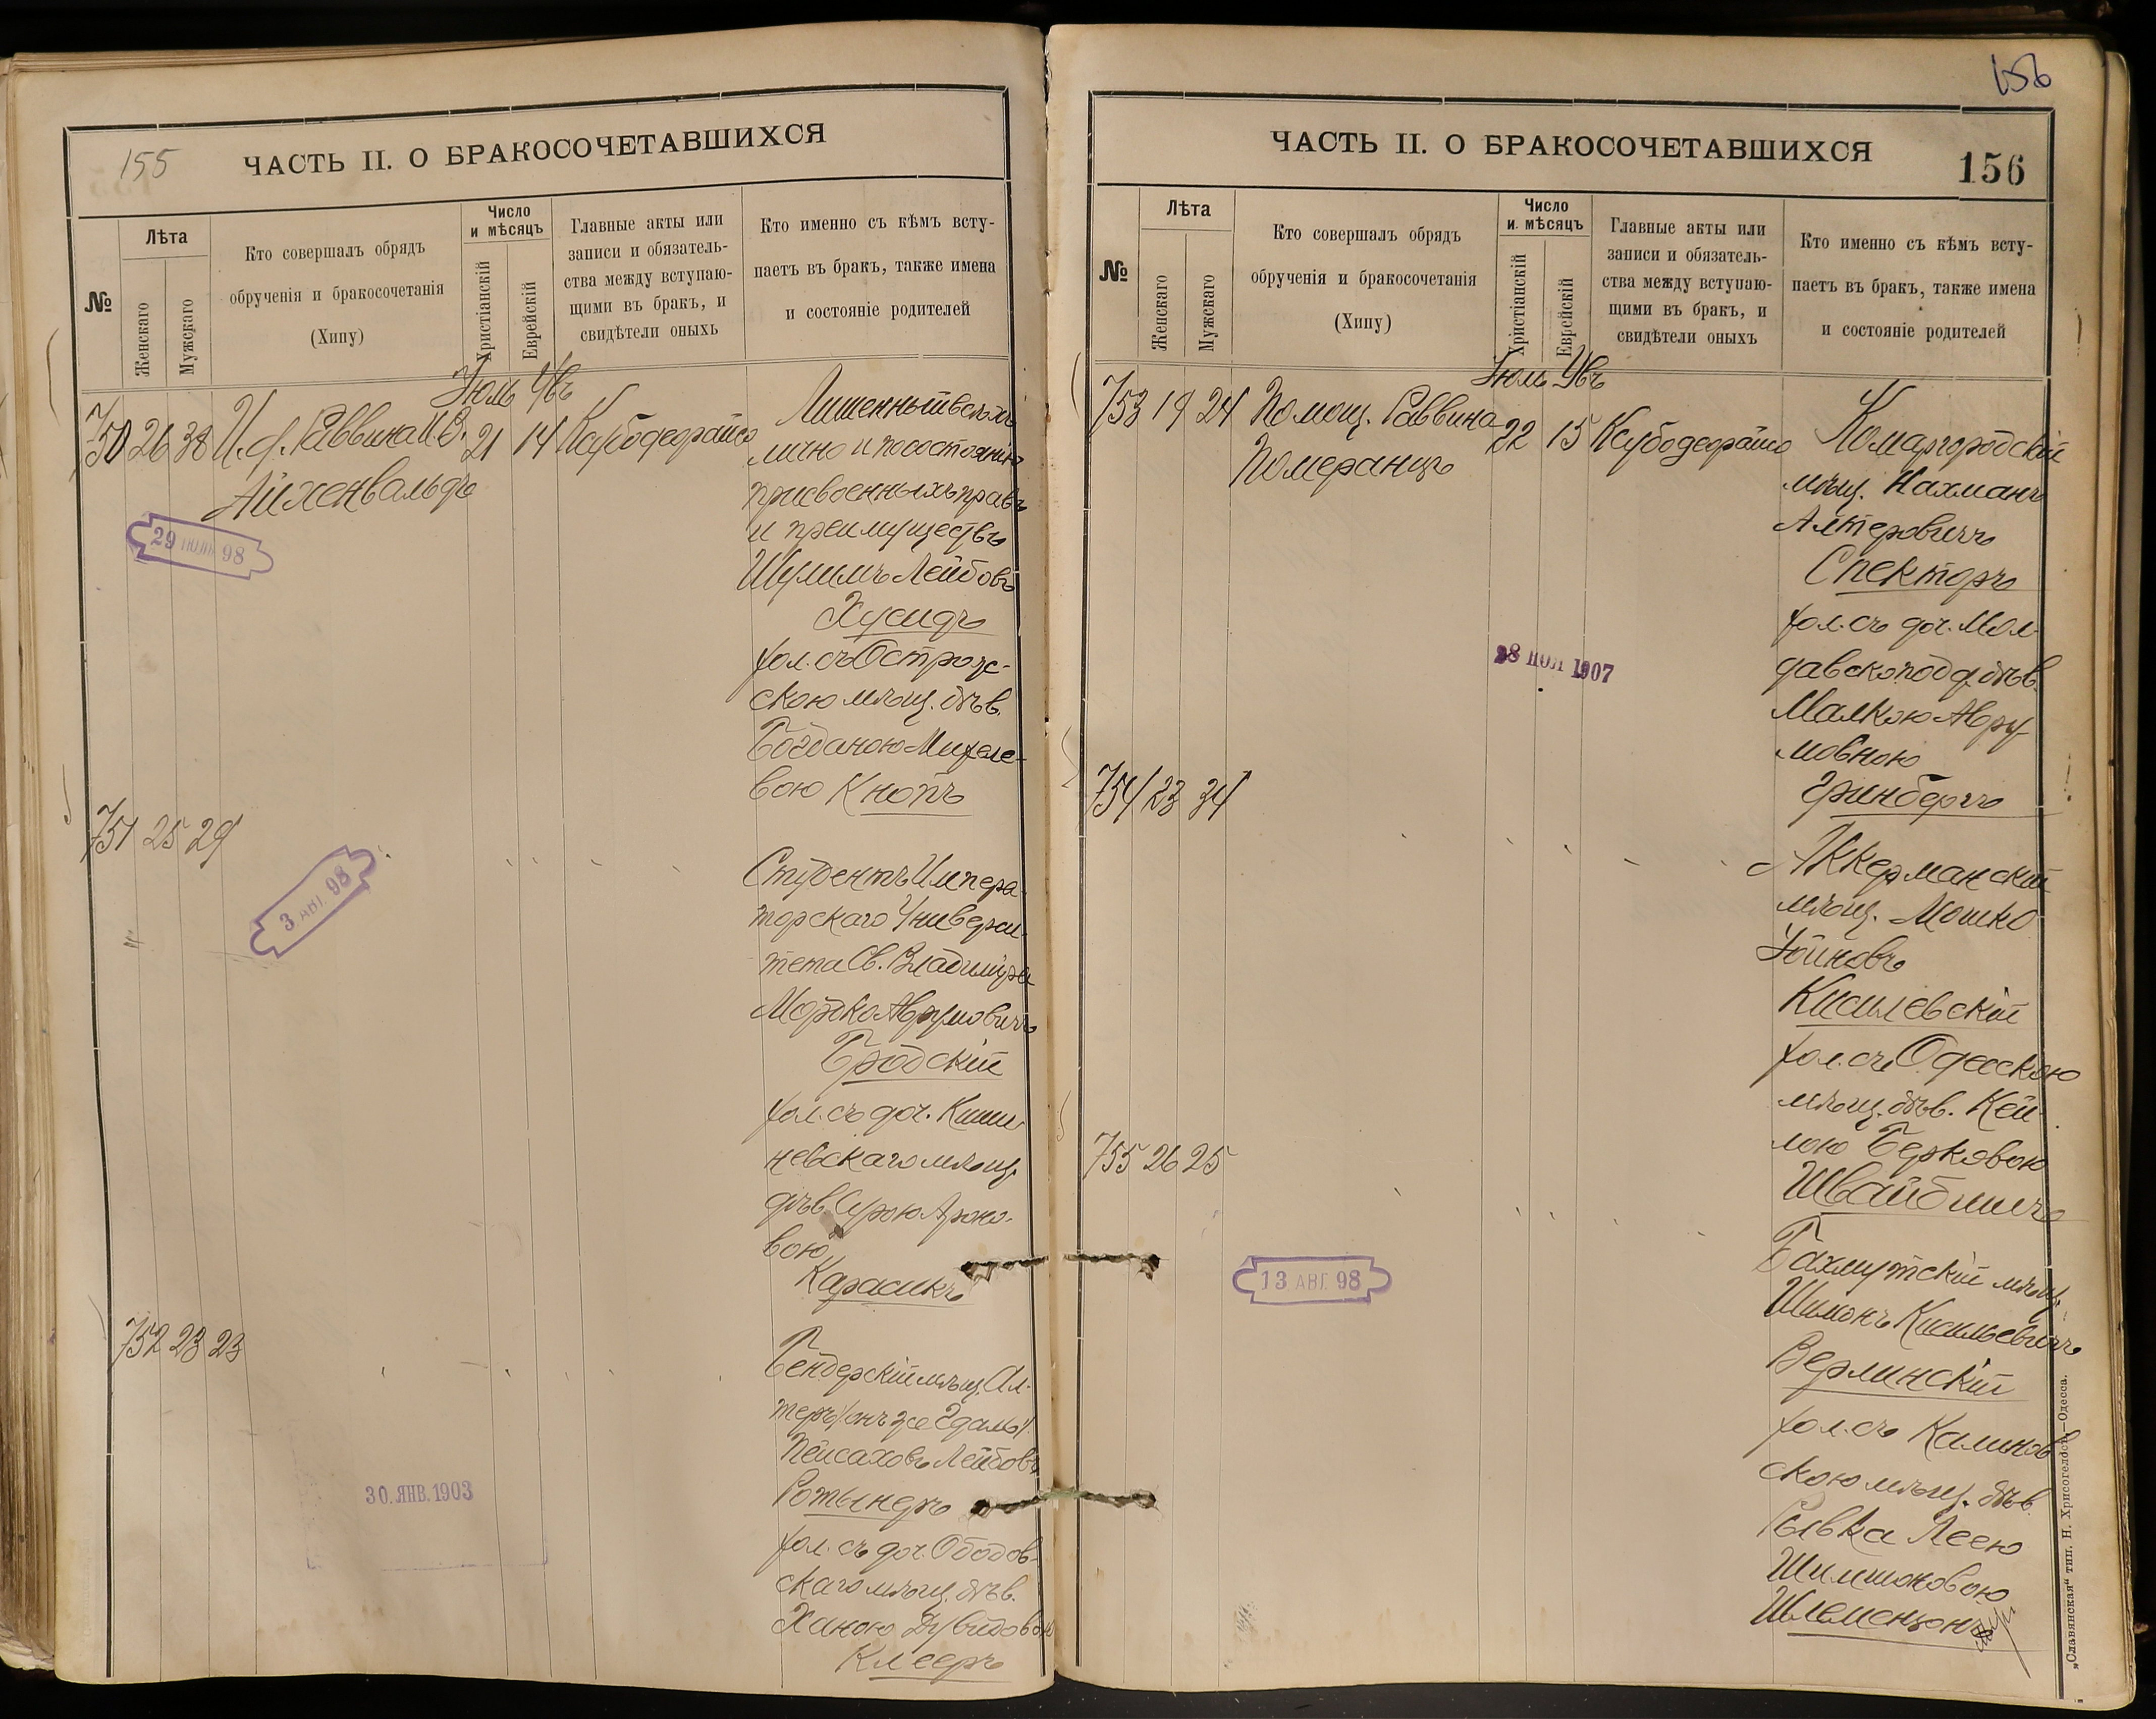 155
ЧАСТЬ II. О БРАКОСОЧЕТАВШИХСЯ
№
Лѣта
Женскаго
Мужскаго
Кто совершалъ обрядъ
обрученія и бракосочетанія
(Хипу)
Число
и мѣсяцъ
Христіанскій
Еврейскій
Главные акты или
записи и обязатель-
ства между вступаю-
щими въ бракъ, и
свидѣтели оныхъ
Кто именно съ кѣмъ всту-
паетъ въ бракъ, также имена
и состояніе родителей
Іюль
750 26 38 И. д. Раввина
21 14
Айхенвальдъ
29 ИЮЛЯ 98
Лишенный всѣхъ
лично и по состоянію
присвоенныхъ правъ
и преимуществъ
Шулимъ Лейбовъ
Хусидъ
хол. съ Острож-
скою мѣщ. дѣв.
Богданою Михеле-
вою Кнопъ
751 25 29
3 АВГ. 98
Студентъ Импера-
торскаго Универси-
тета Св. Владиміра
Мордко Аврумовичъ
Бродскій
хол. съ доч. Киши-
невскаго мѣщ.
дѣв. Сурою Ароно-
вою
Карасикъ
752 23 23
30. ЯНВ. 1903
Бендерскій мѣщ. Ал-
теръ /онъ же
Пейсаховъ Лейбовъ
хол. съ доч. Ободов-
скаго мѣщ. дѣв.
Ханою Дувидовою
Клееръ
156
ЧАСТЬ II. О БРАКОСОЧЕТАВШИХСЯ
156
№
Лѣта
Женскаго
Мужскаго
Кто совершалъ обрядъ
обрученія и бракосочетанія
(Хипу)
Число
и мѣсяцъ
Христіанскій
Еврейскій
Главные акты или
записи и обязатель-
ства между вступаю-
щими въ бракъ, и
свидѣтели оныхъ
Кто именно съ кѣмъ всту-
паетъ въ бракъ, также имена
и состояніе родителей
Іюль
753 19 24 Помощ. Раввина
22 15
Померанцъ
Комаргородскій
мѣщ. Нахманъ
Алтеровичъ
Спекторъ
хол. съ доч. Мол-
давскоподд. дѣв.
Малкою Авру-
мовною
Гринбергъ
28 ИЮЛ 1907
754 23 34
Аккерманскій
мѣщ. Мошко
Кисилевскій
хол. съ Одесскою
мѣщ. дѣв. Кей-
лою Берковою
Швайбишъ
755 26 25
13 АВГ. 98
Бахмутскій мѣщ.
Шимонъ Кисильевичъ
Верлинскій
хол. съ Калинов-
скою мѣщ. дѣв.
Рывка Леею
Шимшоновою
Шлеменцонъ
„Славянская“ тип. Н. Хрисогелосъ.—Одесса.